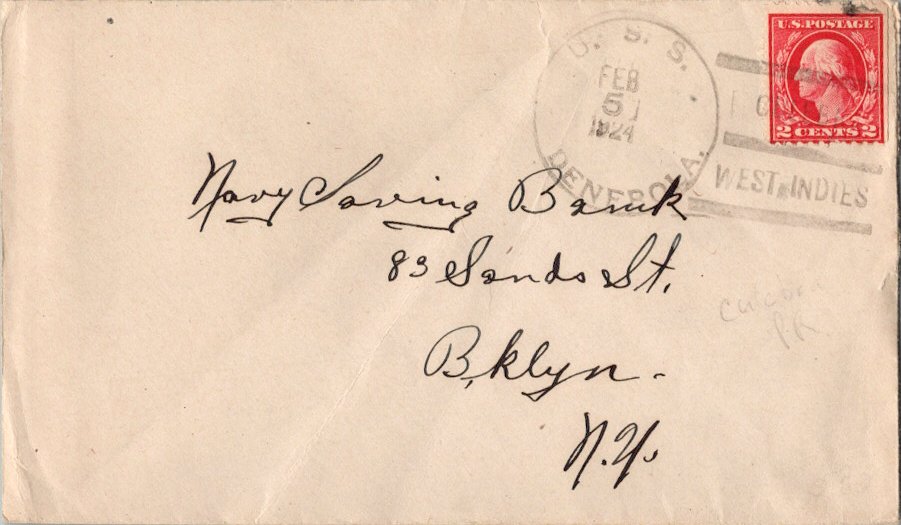 U.S. POSTAGE
2 CENTS 2
U. S. S.
FEB
5
1924
DENEBOLA.
WEST INDIES
Navy Saving Bank
83 Sands St.
Bklyn.
N.Y.
P.R